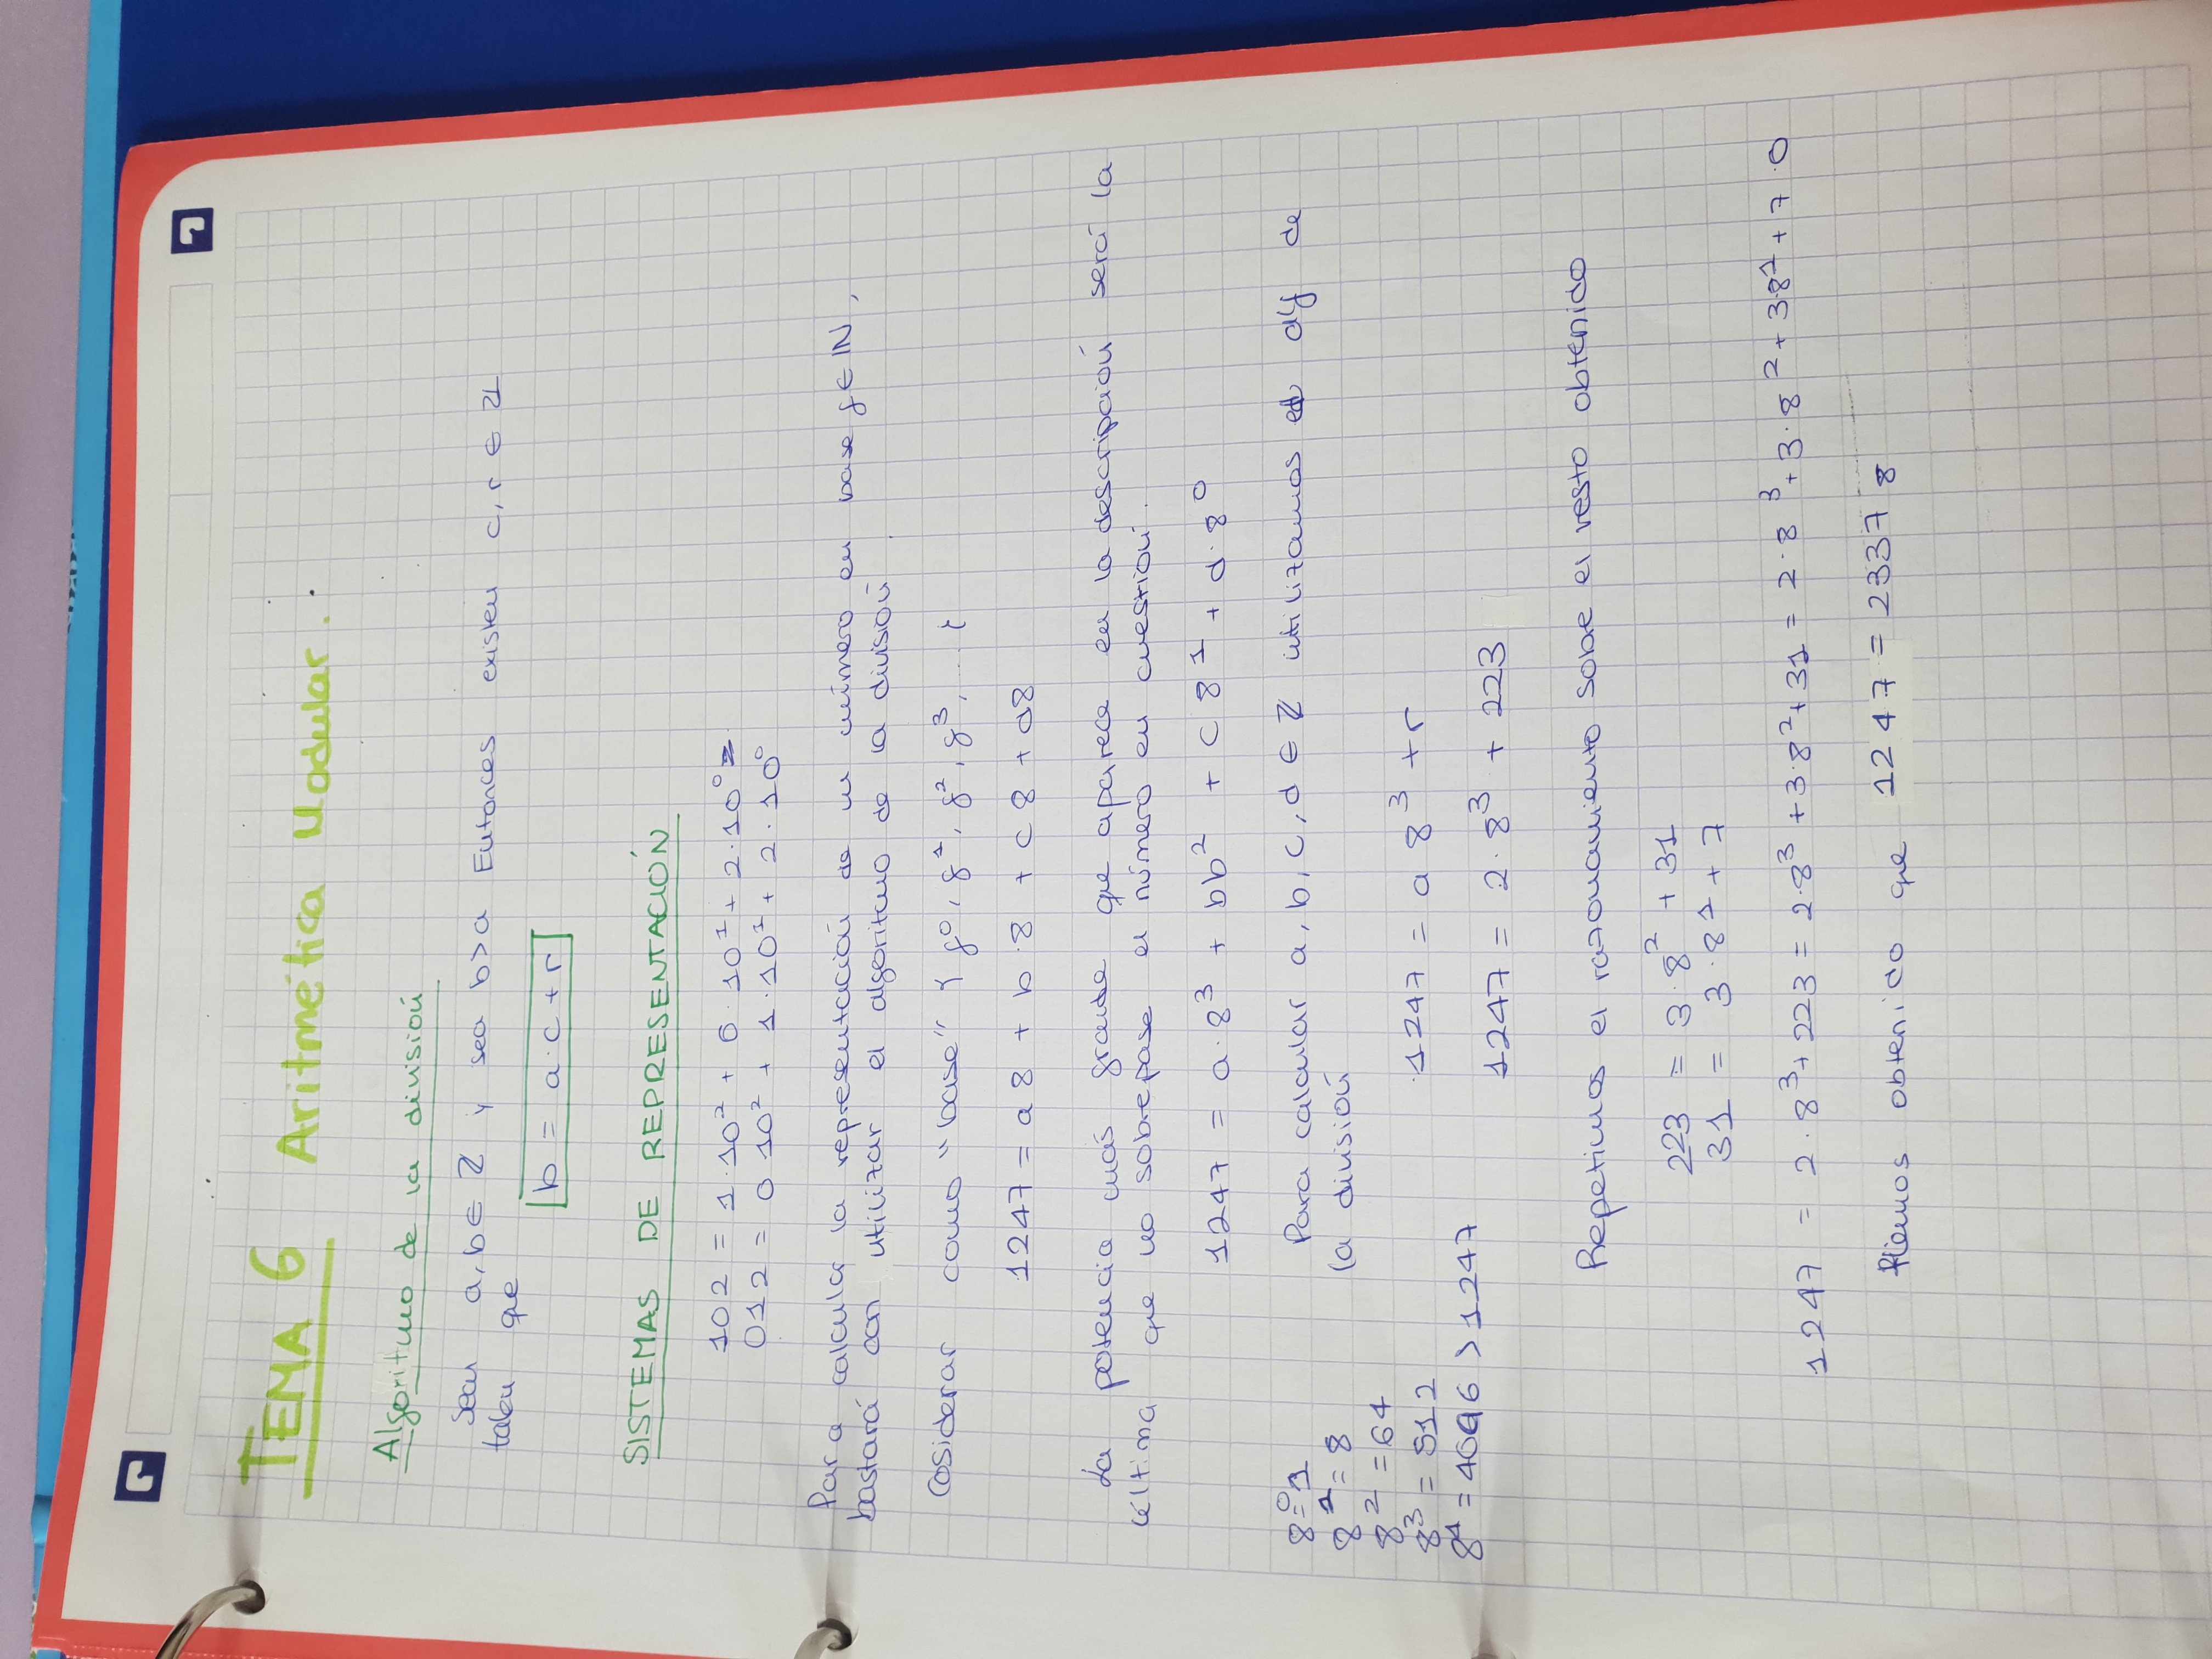 TEMA 6 Aritmética Modular.
Algoritmo de la división
Sean a, b ∈ ℤ y sea b>a Entonces existen c, r ∈ ℤ
talen que
b = a·c + r
SISTEMAS DE REPRESENTACIÓN
102 = 1·10² + 0·10¹ + 2·10⁰ =
012 = 0 10² + 1·10¹ + 2·10⁰
Para calcular la representación de un número en base 8 ∈ ℕ,
bastará con utilizar el algoritmo de la división.
Cosiderar como "base" { 8⁰, 8¹, 8², 8³, .... }
1247 = a 8 + b·8 + c 8 + d8
La potencia más grande que aparece en la descripción será la
última que no sobrepase el número en cuestión.
1247 = a·8³ + bb² + c 8¹ + d·8⁰
8⁰=1
8¹=8
8²=64
8³=512
8⁴=4096 > 1247
Para calcular a, b, c, d ∈ ℤ utilizamos el alg de
la división
1247 = a 8³ + r
1247 = 2·8³ + 223
Repetimos el razonamiento sobre el resto obtenido
223 = 3·8² + 31
31 = 3·8¹ + 7
1247 = 2·8³+223 = 2·8³ +3·8²+31 = 2·8³+3·8²+3·8¹+7·0
Hemos obtenido que 1247 = 2337₈